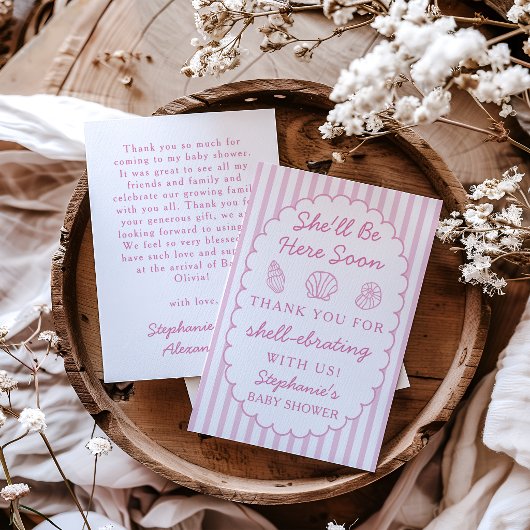 Thank you so much for
coming to my baby shower.
It was great to see all my
friends and family and
celebrate our growing family
with you all. Thank you for
your generous gift, we are
looking forward to using
We feel so very blessed
have such love and
at the arrival of
Olivia!
with love,
Stephanie
She'll Be
Here Soon
THANK YOU FOR
shell-ebrating
WITH US!
Stephanie's
BABY SHOWER